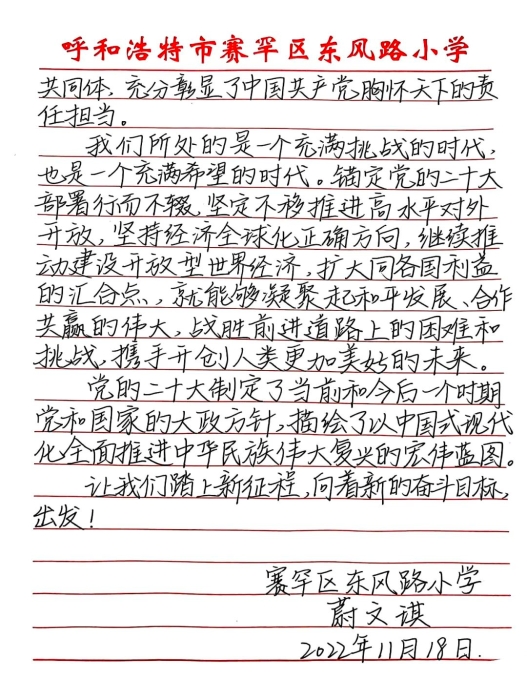 呼和浩特市赛罕区东风路小学
共同体，充分彰显了中国共产党胸怀天下的责
任担当。
我们所处的是一个充满挑战的时代，
也是一个充满希望的时代。锚定党的二十大
部署行而不辍，坚定不移推进高水平对外
开放，坚持经济全球化正确方向，继续推
动建设开放型世界经济，扩大同各国利益
的汇合点，就能够凝聚起和平发展、合作
共赢的伟大，战胜前进道路上的困难和
挑战，携手开创人类更加美好的未来。
党的二十大制定了当前和今后一个时期
党和国家的大政方针，描绘了以中国式现代
化全面推进中华民族伟大复兴的宏伟蓝图。
让我们踏上新征程，向着新的奋斗目标，
出发！
赛罕区东风路小学
蔚文淇
2022年11月18日.